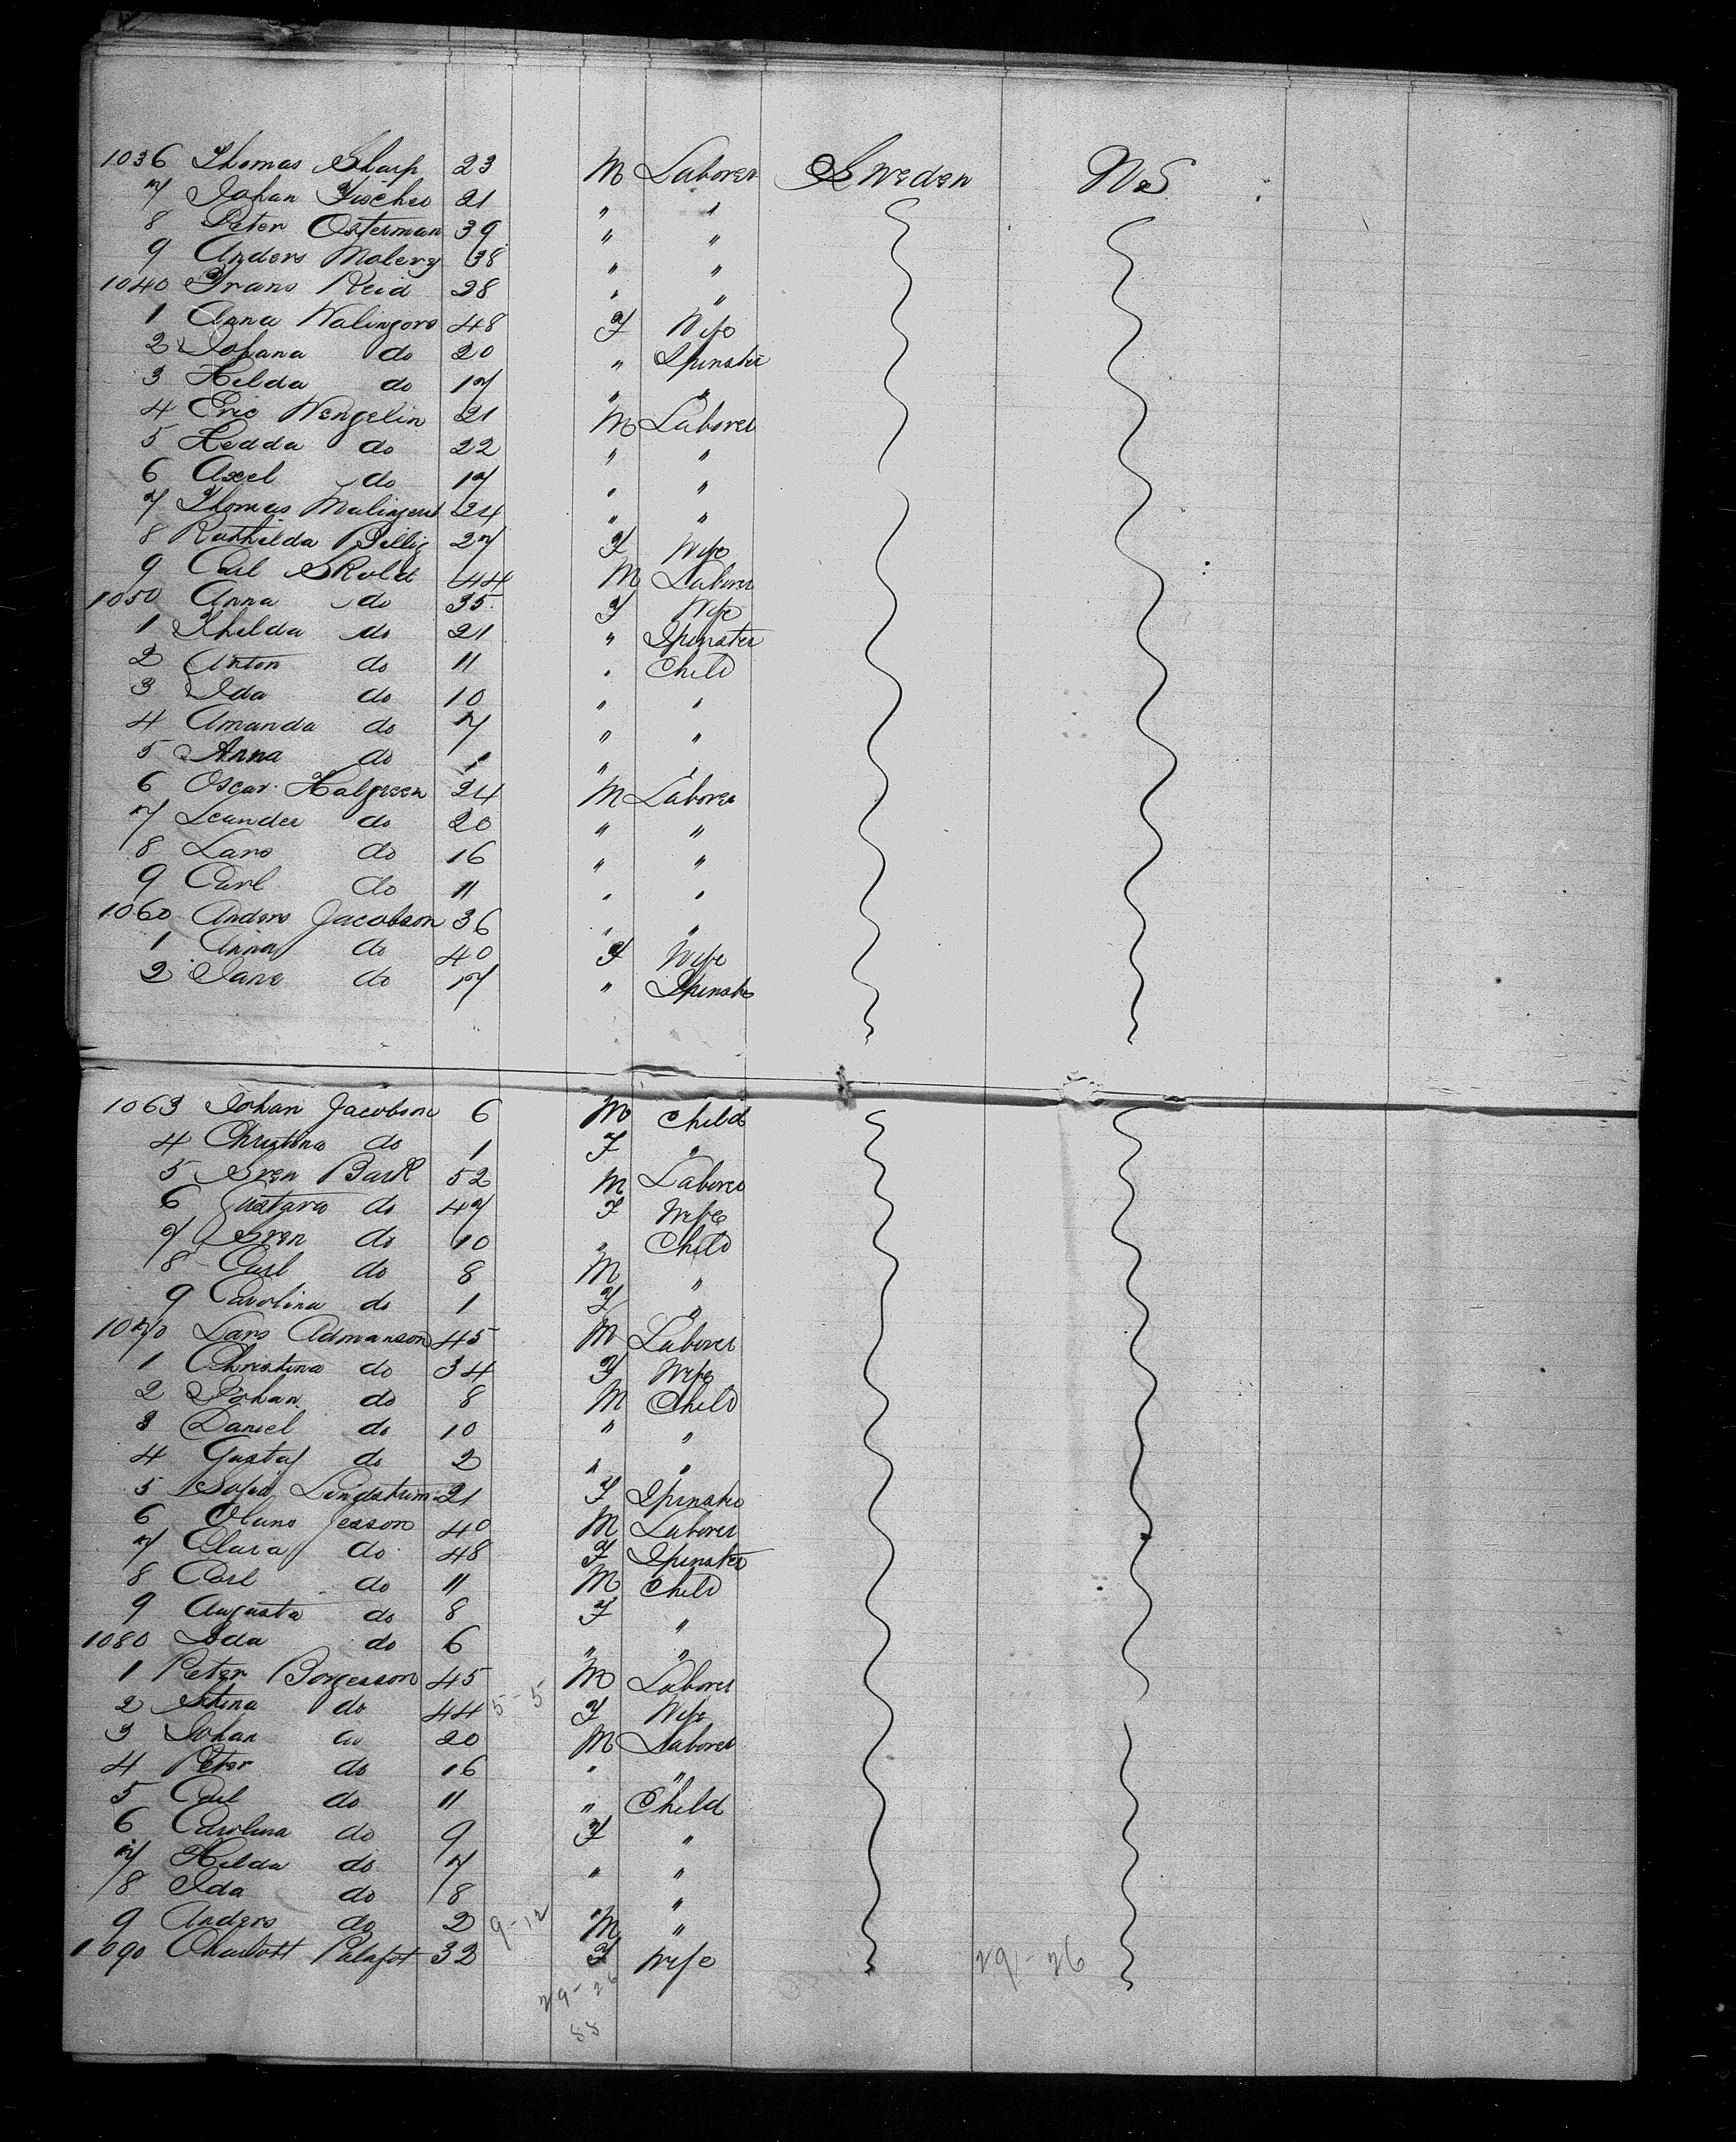 1036 Thomas Sharp 23 M Laborer Sweden US
7 Johan Fischer 21 " "
8 Peter Osterman 39 " "
9 Anders Moberg 38 " "
1040 Frans Reid 28 " "
1 Anna Walingors 48 F Wife
2 Johana do 20 " Spinster
3 Hilda do 17 " "
4 Eric Wengelin 21 M Laborer
5 Hedda do 22 " "
6 Axel do 17 " "
7 Thomas 24 " "
8 Billig 27 F Wife
9 Carl Skold 44 M Laborer
1050 Anna do 35 F Wife
1 Thilda do 21 " Spinster
2 Anton do 11 " Child
3 Ida do 10 " "
4 Amanda do 7 " "
5 Anna do 1 " "
6 Oscar Halgreen 24 M Laborer
7 Leander do 20 " "
8 Lars do 16 " "
9 Carl do 11 " "
1060 Anders Jacobson 36 " "
1 Anna do 40 F Wife
2 Jane do 17 " Spinster
1063 Johan Jacobson 6 M Child
4 Christina do 1 F "
5 Sven Bark 52 M Laborer
6 Gustava do 47 F Wife
7 Sven do 10 " Child
8 Carl do 8 M "
9 Carolina do 1 F "
1070 Lars Admanson 45 M Laborer
1 Christina do 34 F Wife
2 Johan do 8 M Child
3 Daniel do 10 " "
4 Gustaf do 2 " "
5 Sofia Lindstrum 21 F Spinster
6 Jesson 40 M Laborer
7 Clara do 48 F Spinster
8 Carl do 11 M Child
9 Augusta do 8 F "
1080 Ida do 6 " "
1 Peter Borgesson 45 M Laborer
2 Stina do 44 5-5 F Wife
3 Johan do 20 M Laborer
4 Peter do 16 " "
5 Carl do 11 " Child
6 Carolina do 9 F "
7 Hilda do 7 " "
8 Ida do 8 "
9 Anders do 2 9-12 M "
1090 Charlott 32 F Wife 29-26
29-26
55